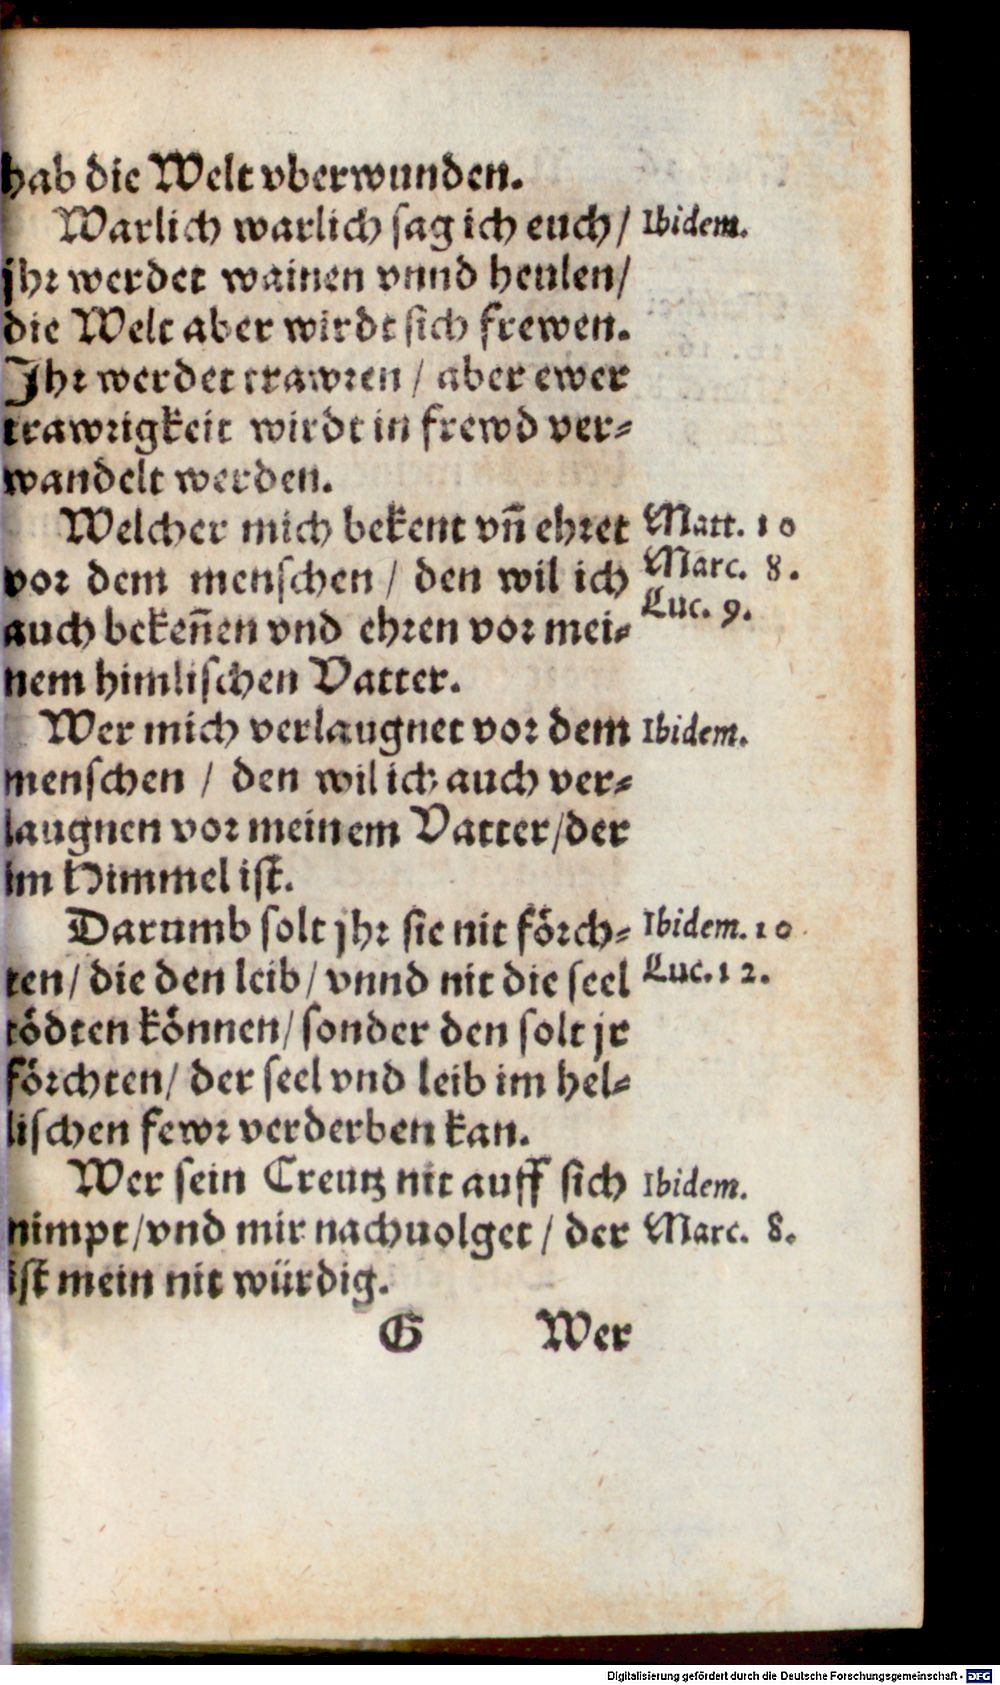 hab die Welt vberwunden.
Warlich warlich sag ich euch / Ibidem.
jhr werdet wainen vnnd heulen/
die Welt aber wirdt sich frewen.
Ihr werdet trawren / aber ewer
trawrigkeit wirdt in frewd ver-
wandelt werden.
Welcher mich bekent vñ ehret Matt. 10
vor dem menschen / den wil ich Marc. 8.
auch bekeñen vnd ehren vor mei- Luc. 9.
nem himlischen Vatter.
Wer mich verlaugnet vor dem Ibidem.
menschen / den wil ich auch ver-
laugnen vor meinem Vatter/der
im Himmel ist.
Darumb solt jhr sie nit förch- Ibidem. 10.
ten/ die den leib/ vnnd nit die seel Luc. 12.
tödten können/ sonder den solt jr
förchten/ der seel vnd leib im hel-
lischen fewr verderben kan.
Wer sein Creutz nit auff sich Ibidem.
nimpt/vnd mir nachuolget / der Marc. 8.
ist mein nit würdig.
G Wer
Digitalisierung gefördert durch die Deutsche Forschungsgemeinschaft - DFG